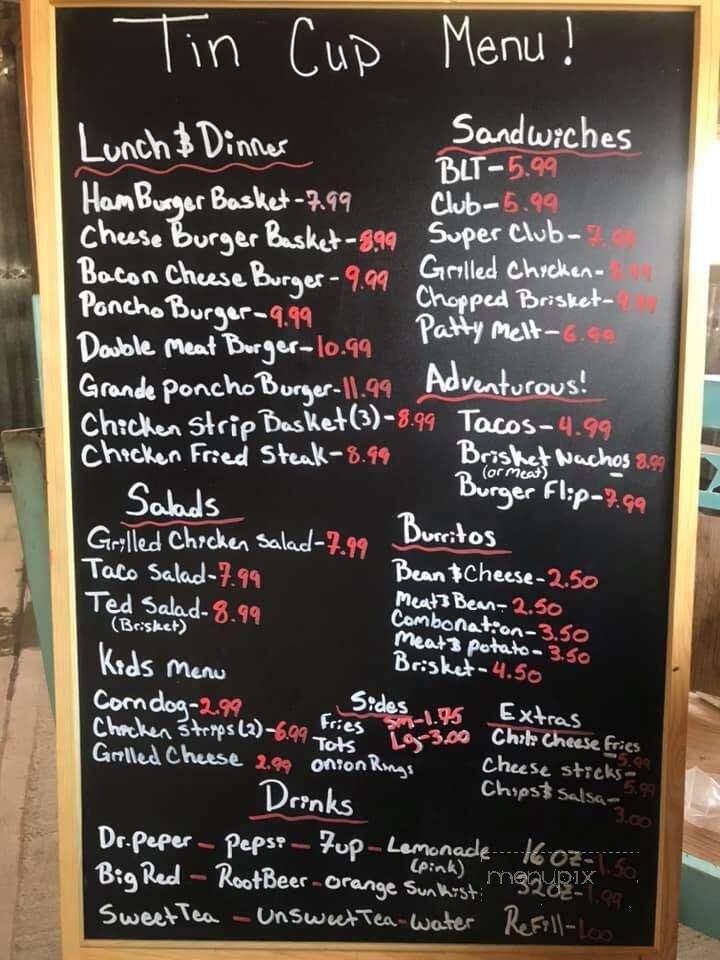 Tin Cup Menu!
Lunch & Dinner
HamBurger Basket-7.99
Cheese Burger Basket-8.99
Bacon Cheese Burger-9.99
Poncho Burger-9.99
Double Meat Burger-10.99
Grande Poncho Burger-11.99
Chicken Strip Basket(3)-8.99
Chicken Fried Steak-8.99
Salads
Grilled Chicken Salad-7.99
Taco Salad-7.99
Ted Salad-8.99
(Brisket)
Kids Menu
Corndog-2.99
Chicken Strips(2)-6.99
Grilled Cheese 2.99
Sandwiches
BLT-5.99
Club-5.99
Super Club-
Grilled Chicken-
Chopped Brisket-
Patty Melt-6.99
Adventurous!
Tacos-4.99
Brisket Nachos 8.99
(or meat)
Burger Flip-7.99
Burritos
Bean & Cheese-2.50
Meat & Bean-2.50
Combonation-3.50
Meat & Potato-3.50
Brisket-4.50
Sides
Fries Sm-1.75
Tots Lg-3.00
Onion Rings
Extras
Chili Cheese Fries
-5.99
Cheese Sticks-
5.99
Chips & Salsa-
3.00
Drinks
Dr.Peper - Pepsi - 7up - Lemonade
(Pink)
Big Red - RootBeer - Orange Sunkist
Sweet Tea - UnSweet Tea - Water
16 oz-1.50
32oz-1.99
Refill-1.00
menupix